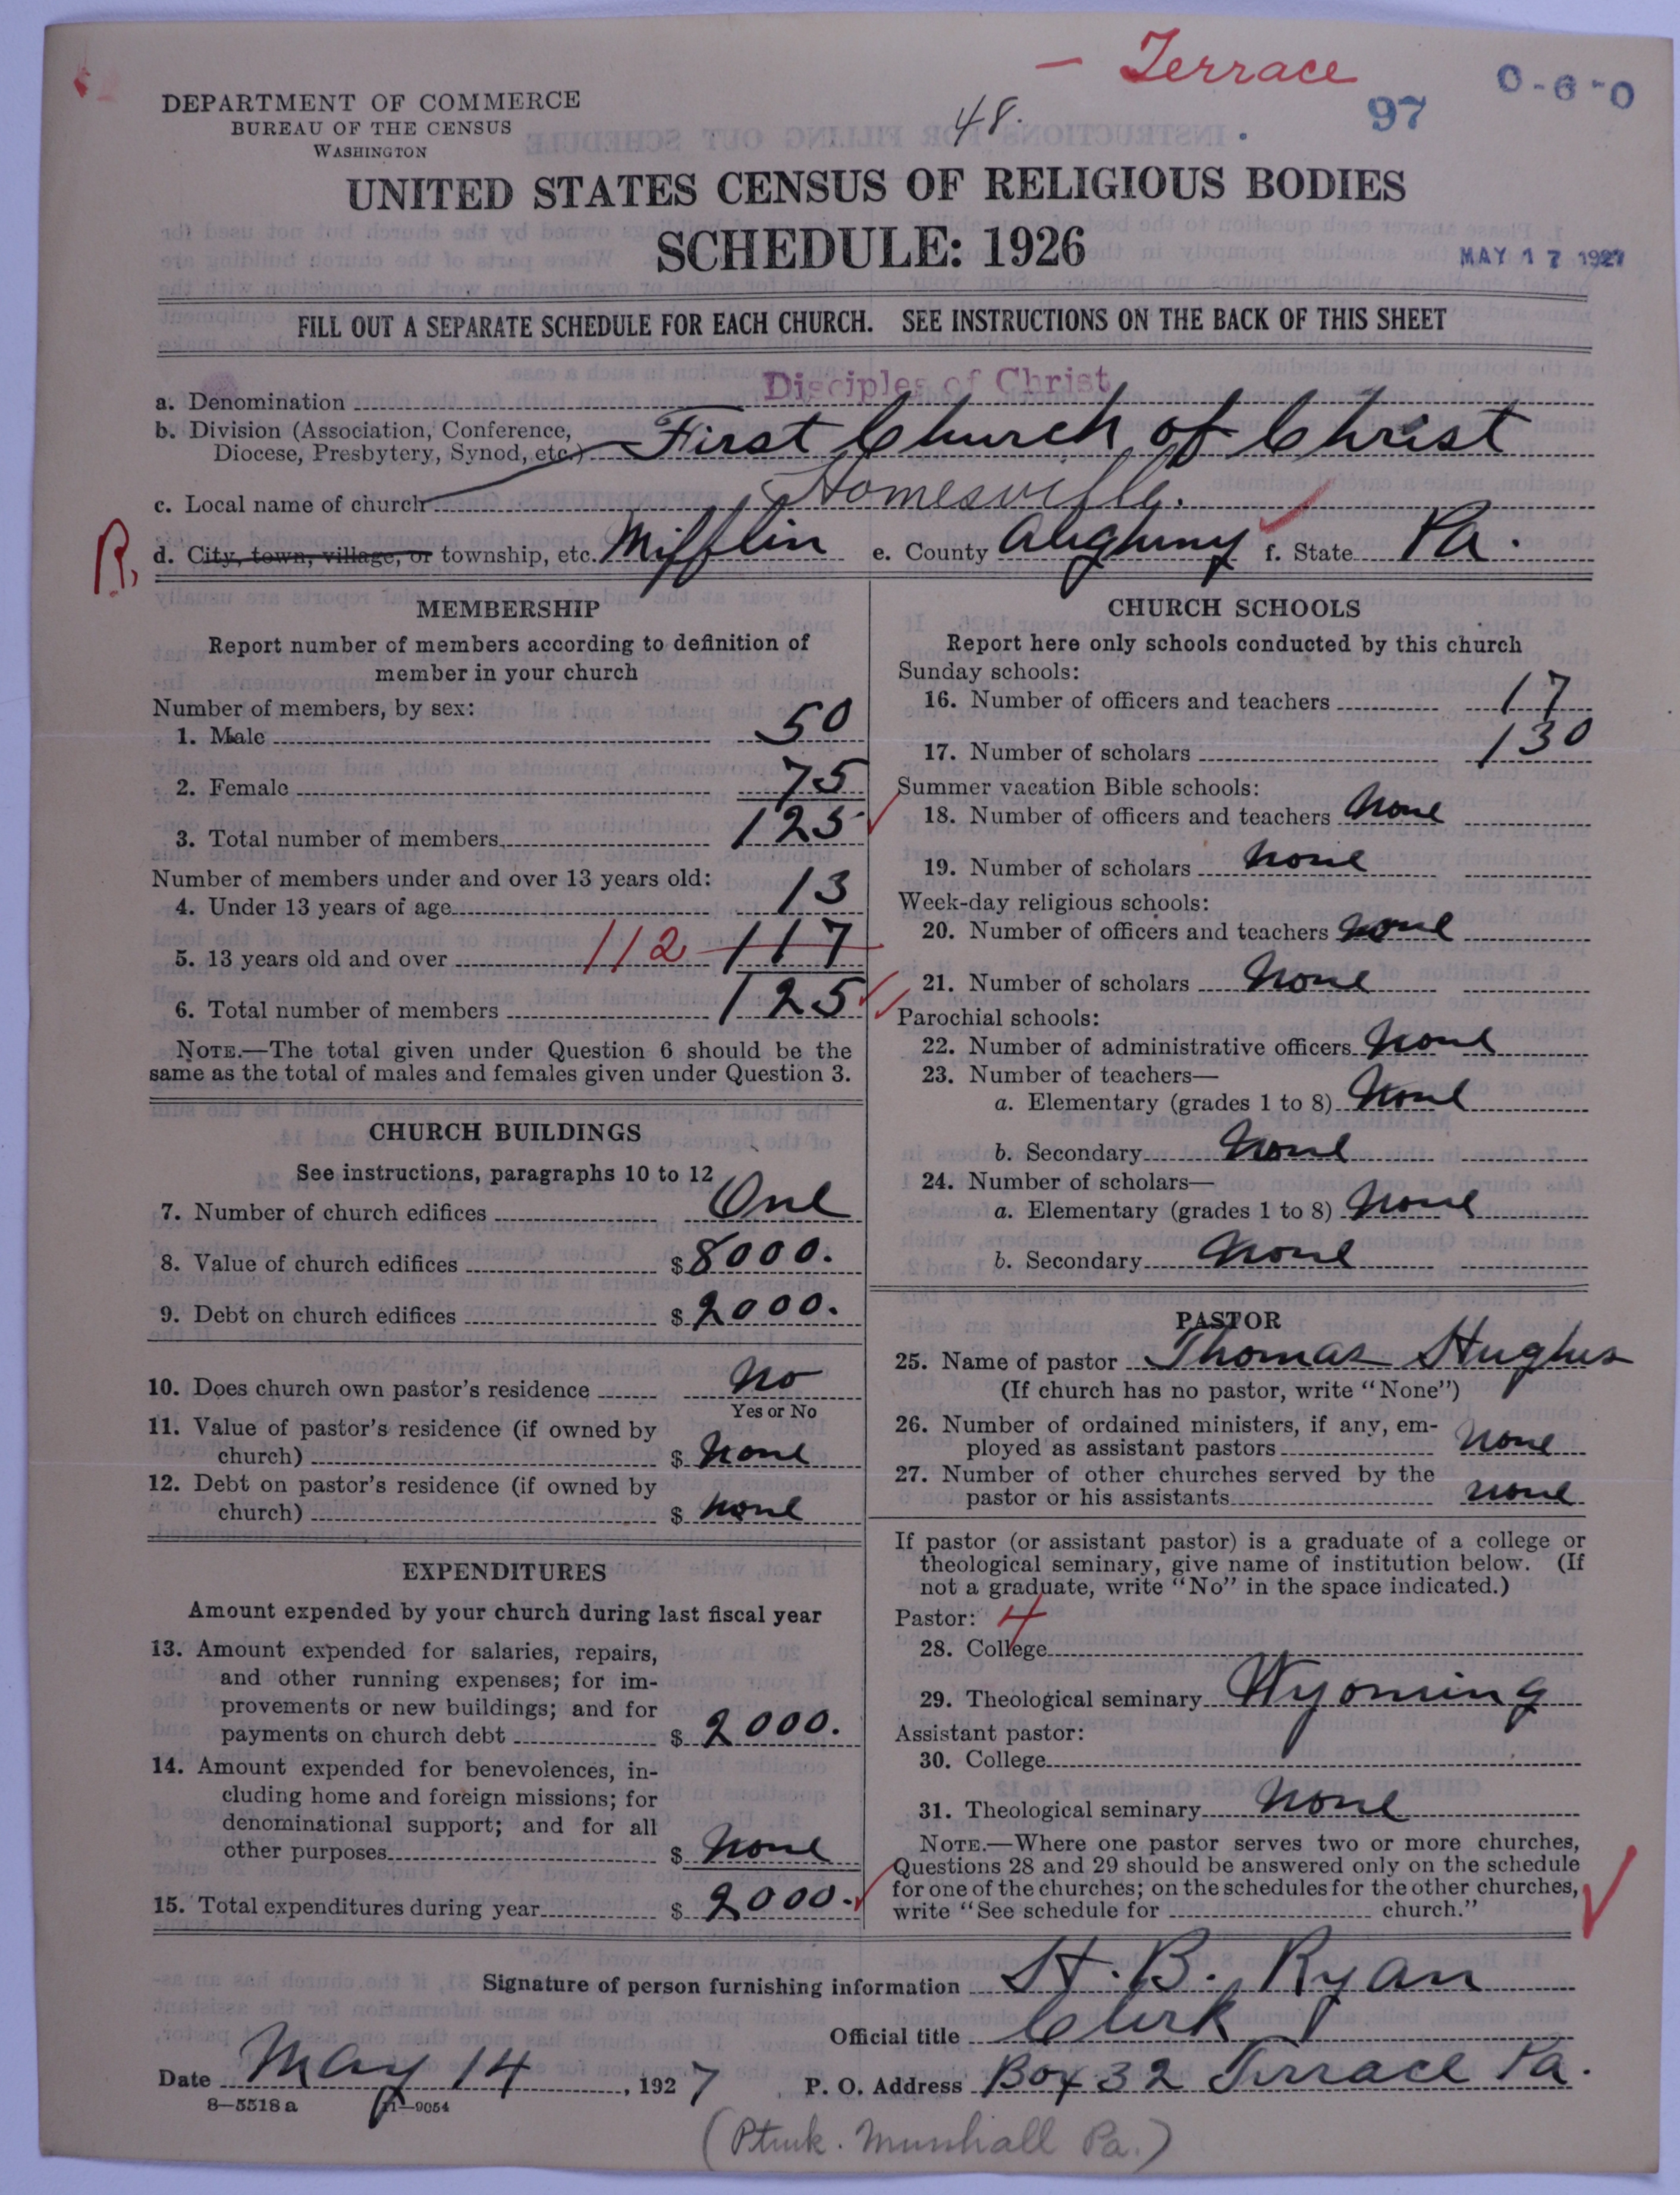 — Terrace
48.
97
0-6-0
DEPARTMENT OF COMMERCE
BUREAU OF THE CENSUS
WASHINGTON
UNITED STATES CENSUS OF RELIGIOUS BODIES
SCHEDULE: 1926
MAY 17 1927
FILL OUT A SEPARATE SCHEDULE FOR EACH CHURCH. SEE INSTRUCTIONS ON THE BACK OF THIS SHEET
a. Denomination Disciples of Christ
b. Division (Association, Conference,
Diocese, Presbytery, Synod, etc.) First Church of Christ
c. Local name of church Homesville.
R, d. City, town, village, or township, etc. Mifflin e. County Aleghuny f. State Pa.
MEMBERSHIP
Report number of members according to definition of
member in your church
Number of members, by sex:
1. Male 50
2. Female 75
3. Total number of members 125
Number of members under and over 13 years old:
4. Under 13 years of age 13
5. 13 years old and over 112 117
6. Total number of members 125
NOTE.—The total given under Question 6 should be the
same as the total of males and females given under Question 3.
CHURCH BUILDINGS
See instructions, paragraphs 10 to 12
7. Number of church edifices One
8. Value of church edifices $ 8000.
9. Debt on church edifices $ 2000.
10. Does church own pastor's residence No
Yes or No
11. Value of pastor's residence (if owned by
church) $ None
12. Debt on pastor's residence (if owned by
church) $ none
EXPENDITURES
Amount expended by your church during last fiscal year
13. Amount expended for salaries, repairs,
and other running expenses; for im-
provements or new buildings; and for
payments on church debt $ 2000.
14. Amount expended for benevolences, in-
cluding home and foreign missions; for
denominational support; and for all
other purposes $ None
15. Total expenditures during year $ 2000.
CHURCH SCHOOLS
Report here only schools conducted by this church
Sunday schools:
16. Number of officers and teachers 17
17. Number of scholars 130
Summer vacation Bible schools:
18. Number of officers and teachers None
19. Number of scholars None
Week-day religious schools:
20. Number of officers and teachers None
21. Number of scholars None
Parochial schools:
22. Number of administrative officers None
23. Number of teachers—
a. Elementary (grades 1 to 8) None
b. Secondary None
24. Number of scholars—
a. Elementary (grades 1 to 8) None
b. Secondary None
PASTOR
25. Name of pastor Thomas Hughes
(If church has no pastor, write "None")
26. Number of ordained ministers, if any, em-
ployed as assistant pastors None
27. Number of other churches served by the
pastor or his assistants none
If pastor (or assistant pastor) is a graduate of a college or
theological seminary, give name of institution below. (If
not a graduate, write "No" in the space indicated.)
Pastor: 4
28. College
29. Theological seminary Wyoming
Assistant pastor:
30. College
31. Theological seminary None
NOTE.—Where one pastor serves two or more churches,
Questions 28 and 29 should be answered only on the schedule
for one of the churches; on the schedules for the other churches,
write "See schedule for church."
Signature of person furnishing information H. B. Ryan
Official title Clerk
Date May 14, 1927 P. O. Address Box 32 Terrace Pa.
8—5518 a 11—9054
(Ptmk. Munhall Pa.)